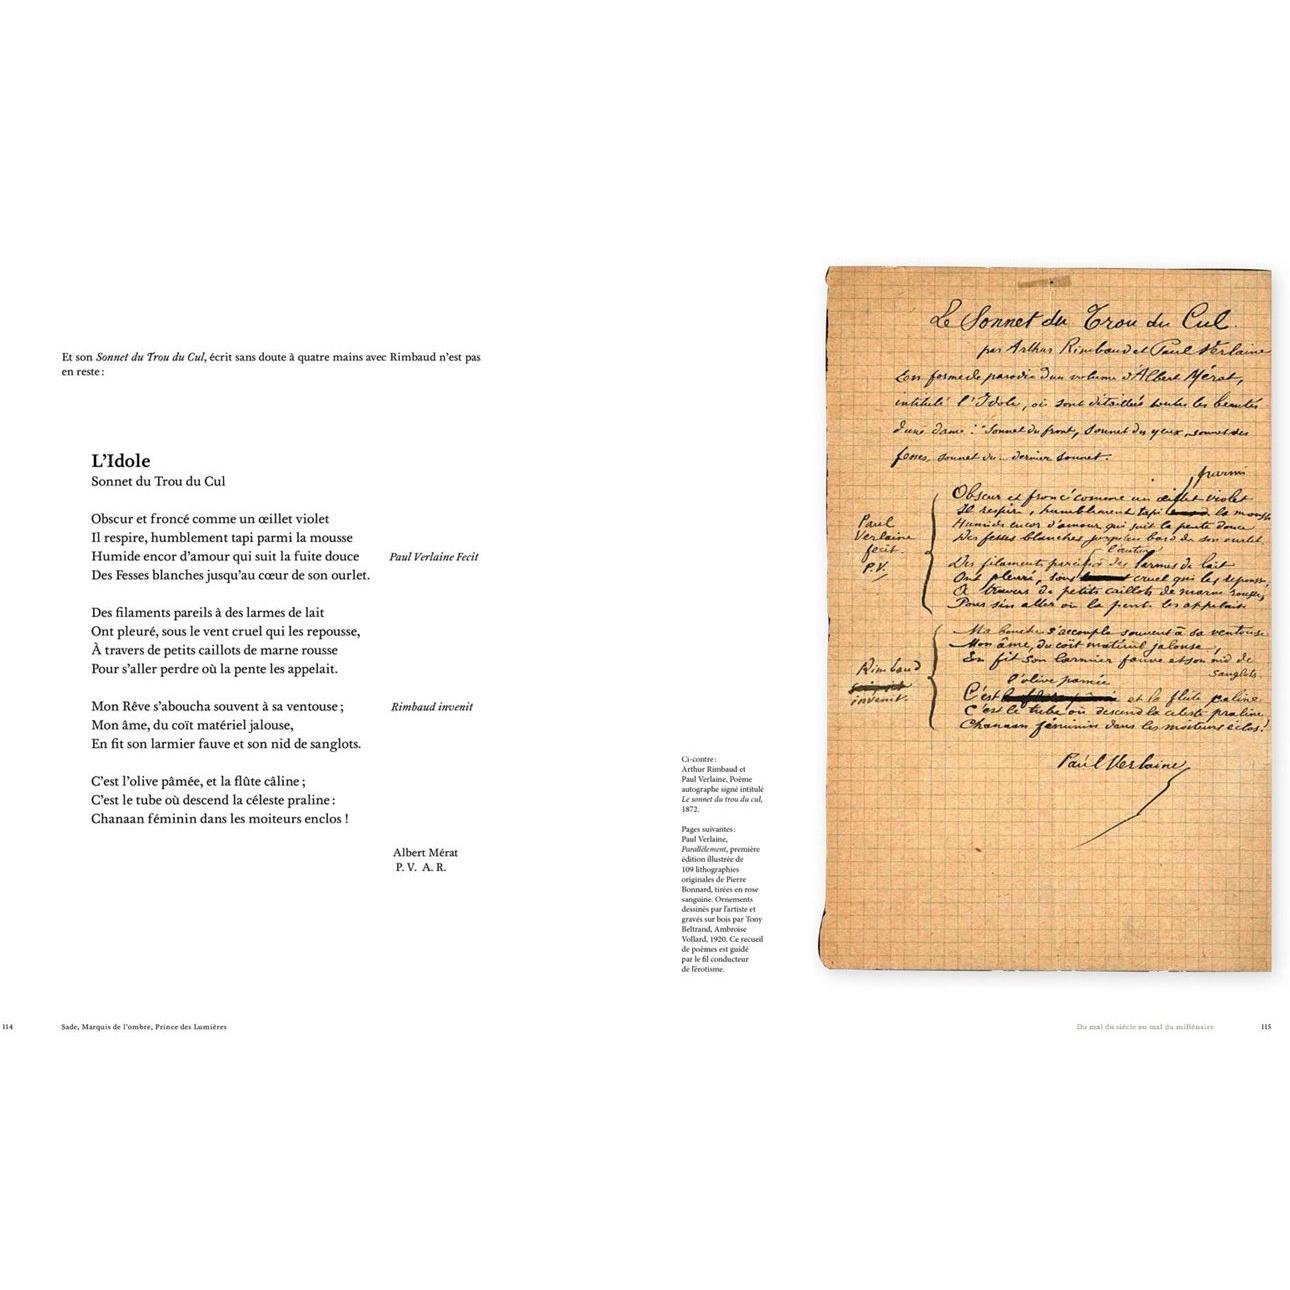 Et son Sonnet du Trou du Cul, écrit sans doute à quatre mains avec Rimbaud n'est pas
en reste :
L'Idole
Sonnet du Trou du Cul
Obscur et froncé comme un œillet violet
Il respire, humblement tapi parmi la mousse
Humide encor d'amour qui suit la fuite douce
Paul Verlaine Fecit
Des Fesses blanches jusqu'au cœur de son ourlet.
Des filaments pareils à des larmes de lait
Ont pleuré, sous le vent cruel qui les repousse,
À travers de petits caillots de marne rousse
Pour s'aller perdre où la pente les appelait.
Mon Rêve s'aboucha souvent à sa ventouse ;
Rimbaud invenit
Mon âme, du coït matériel jalouse,
En fit son larmier fauve et son nid de sanglots.
C'est l'olive pâmée, et la flûte câline ;
C'est le tube où descend la céleste praline :
Chanaan féminin dans les moiteurs enclos !
Albert Mérat
P. V. A. R.
114
Sade, Marquis de l'ombre, Prince des Lumières
Ci-contre :
Arthur Rimbaud et
Paul Verlaine, Poème
autographe signé intitulé
Le sonnet du trou du cul,
1872.
Pages suivantes :
Paul Verlaine,
Parallèlement, première
édition illustrée de
109 lithographies
originales de Pierre
Bonnard, tirées en rose
sanguine. Ornements
dessinés par l'artiste et
gravés sur bois par Tony
Beltrand, Ambroise
Vollard, 1920. Ce recueil
de poèmes est guidé
par le fil conducteur
de l'érotisme.
Le Sonnet du Trou du Cul.
par Arthur Rimbaud et Paul Verlaine
En forme de parodie d'un volume d'Albert Mérat,
intitulé l'Idole, où sont détaillées toutes les beautés
d'une dame : "Sonnet du front, Sonnet des yeux, sonnet des
fesses, sonnet du... dernier sonnet.
parmi
Obscur et froncé comme un œillet violet
Il respire, humblement tapi la mousse
Paul
Verlaine
fecit.
P.V.
Humide encor d'amour qui suit la pente douce
Des fesses blanches jusqu'au bord de son ourlet.
Des filaments pareils à des larmes de lait
Ont pleuré, sous cruel qui les repousse,
À travers de petits caillots de marne rousse,
Pour s'en aller où la pente les appelait.
Ma bouche s'accoupla souvent à sa ventouse
Mon âme, du coït matériel jalouse,
En fit son larmier fauve et son nid de
sanglots.
Rimbaud
invenit.
l'olive pâmée
C'est et la flûte caline
C'est le tube où descend la céleste praline
Chanaan féminin dans les moiteurs éclos !
Paul Verlaine
Du mal du siècle au mal du millénaire
115